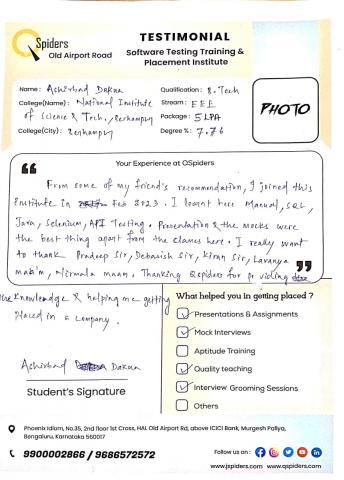 QSpiders
Old Airport Road
TESTIMONIAL
Software Testing Training &
Placement Institute
Name: Ashirbad Dakua
College(Name): National Institute
of Science & Tech., Berhampur
College(City): Berhampur
Qualification: B.Tech
Stream: EEE
Package: 5 LPA
Degree %: 7.76
PHOTO
Your Experience at QSpiders
From some of my friend's recommendation, I joined this
institute in Feb 2023. I learnt here Manual, SQL,
Java, Selenium, API Testing. Presentation & the mocks were
the best thing apart from the classes here. I really want
to thank Pradeep Sir, Debasish Sir, Kiran Sir, Lavanya
mam, Nirmala maam. Thanking Qspiders for providing
the knowleadge & helping me getting
placed in a company.
Ashirbad Dakua
Student's Signature
What helped you in getting placed ?
Presentations & Assignments
Mock Interviews
Aptitude Training
Quality teaching
Interview Grooming Sessions
Others
Phoenix Idiom, No.35, 2nd floor 1st Cross, HAL Old Airport Rd, above ICICI Bank, Murgesh Pallya,
Bengaluru, Karnataka 560017
9900002866 / 9686572572
Follow us on :
www.jspiders.com www.qspiders.com